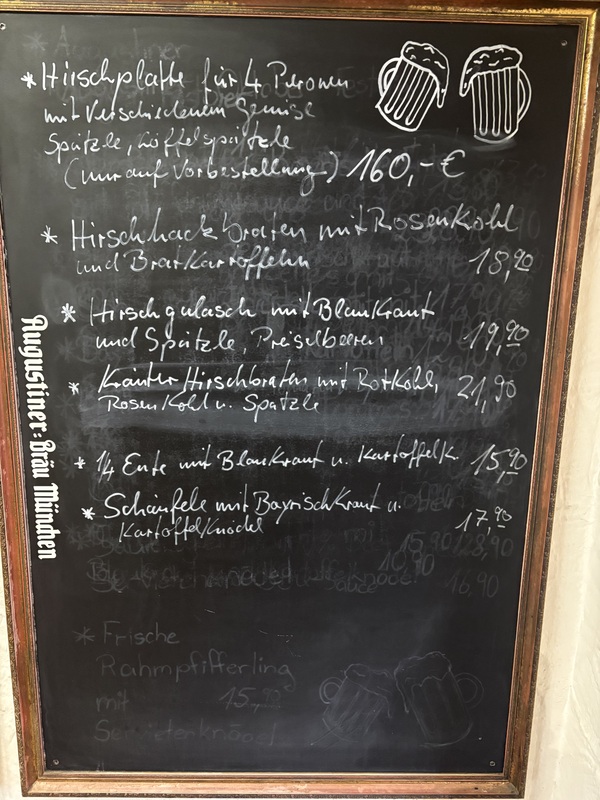 * Hirschplatte für 4 Personen
mit Verschiedenem Gemüse
Spätzle, Löffelspätzle
(nur auf Vorbestellung) 160,- €
* Hirschhackbraten mit Rosenkohl
und Bratkartoffeln 18,90
* Hirschgulasch mit Blaukraut
und Spätzle, Preiselbeeren 19,90
* Kräuter Hirschbraten mit Rotkohl, 21,90
Rosenkohl u. Spätzle
* 1/4 Ente mit Blaukraut u. Kartoffelk. 15,90
* Schäufele mit Bayrischkraut u.
Kartoffelknödel 17,90
* Frische
Rahmpfifferling
mit 15,90
Serviettenknödel
Augustiner=Bräu München